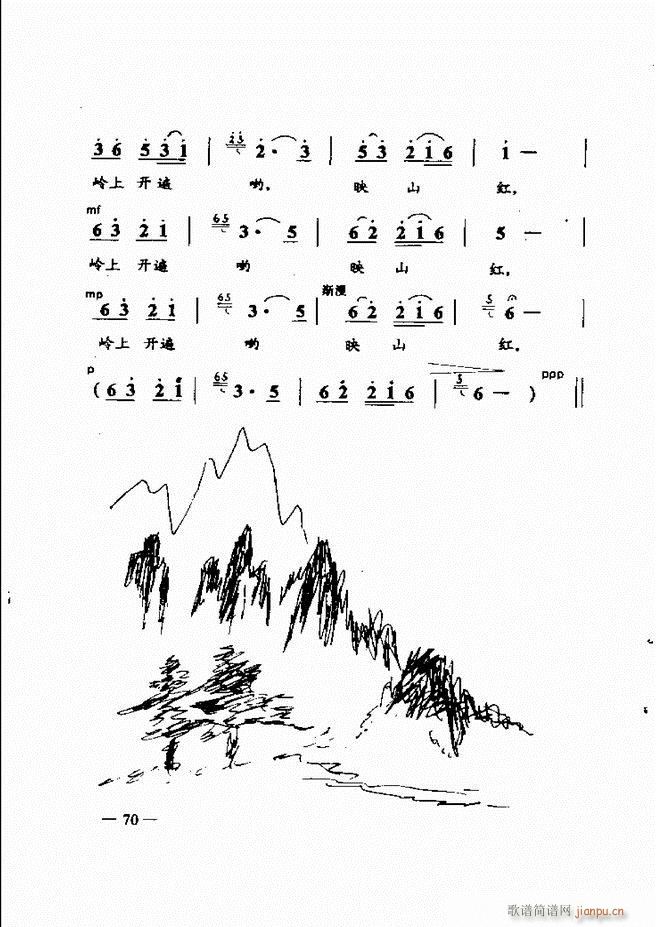 3 6 5 3 1 | 2 5 2 · 3 | 5 3 2 1 6 | 1 — |
岭上 开遍 哟, 映 山 红,
mf
6 3 2 1 | 6 5 3 · 5 | 6 2 2 1 6 | 5 — |
岭上 开遍 哟 映 山 红,
mp 渐慢
6 3 2 1 | 6 5 3 · 5 | 6 2 2 1 6 | 5 6 — |
岭上 开遍 哟 映 山 红。
p ppp
( 6 3 2 1 | 6 5 3 · 5 | 6 2 2 1 6 | 5 6 — ) ||
— 70 —
歌谱简谱网 jianpu.cn